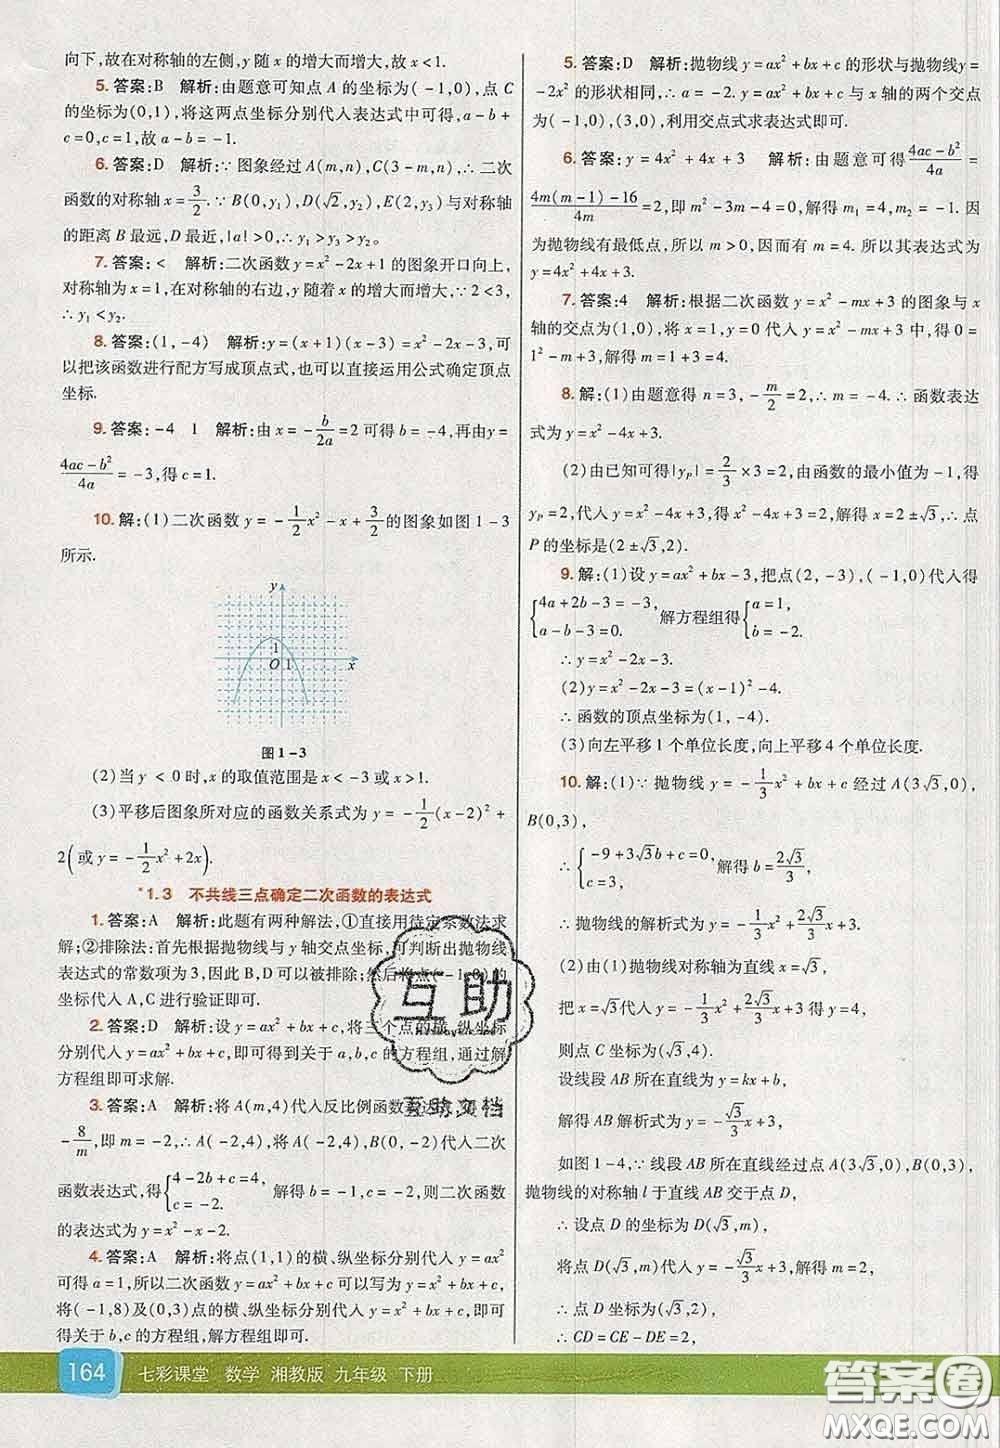 向下,故在对称轴的左侧,y 随 x 的增大而增大,故 x<1.
5. 答案:B 解析:由题意可知点 A 的坐标为(-1,0),点 C
的坐标为(0,1),将这两点坐标分别代入表达式中可得,a-b+
c=0,c=1,故 a-b=-1.
6. 答案:D 解析:∵图象经过 A(m,n),C(3-m,n),∴二次
函数的对称轴 x=3/2.∵B(0,y₁),D(√2,y₂),E(2,y₃)与对称轴
的距离 B 最远,D 最近,|a|>0,∴y₁>y₃>y₂。
7. 答案:< 解析:二次函数 y=x²-2x+1 的图象开口向上,
对称轴为 x=1,在对称轴的右边,y 随着 x 的增大而增大,∵2<3,
∴y₁<y₂.
8. 答案:(1,-4) 解析:y=(x+1)(x-3)=x²-2x-3,可
以把该函数进行配方写成顶点式,也可以直接运用公式确定顶点
坐标.
9. 答案:-4 1 解析:由 x=-b/2a=2 可得 b=-4,再由y=
(4ac-b²)/4a=-3,得 c=1.
10. 解:(1)二次函数 y=-1/2x²-x+3/2的图象如图 1-3
所示.
y
1
O 1 x
图 1-3
(2)当 y<0 时,x 的取值范围是 x<-3 或 x>1.
(3)平移后图象所对应的函数关系式为 y=-1/2(x-2)²+
2(或 y=-1/2x²+2x).
*1.3 不共线三点确定二次函数的表达式
1. 答案:A 解析:此题有两种解法,①直接用待定系数法求
解;②排除法:首先根据抛物线与 y 轴交点坐标,可判断出抛物线
表达式的常数项为 3,因此 B,D 可以被排除;然后将点(-1,8)的
坐标代入 A,C 进行验证即可.
2. 答案:D 解析:设 y=ax²+bx+c,将三个点的横、纵坐标
分别代入,即可得到关于 a,b,c 的方程组,通过解
方程组即可求解.
3. 答案:A 解析:将 A(m,4)代入反比例函数表达式,得 4=
-8/m,即 m=-2,∴A(-2,4),将 A(-2,4),B(0,-2)代入二次
函数表达式,得{4-2b+c=4, c=-2. 解得 b=-1,c=-2,则二次函数
的表达式为 y=x²-x-2.
4. 答案:A 解析:将点(1,1)的横、纵坐标分别代入 y=ax²
可得 a=1,所以二次函数 y=ax²+bx+c 可以写为 y=x²+bx+c,
将(-1,8)及(0,3)点的横、纵坐标分别代入 y=x²+bx+c,即可
得关于 b,c 的方程组,解方程组即可.
5. 答案:D 解析:抛物线 y=ax²+bx+c 的形状与抛物线y=
-2x² 的形状相同,∴a=-2. y=ax²+bx+c 与 x 轴的两个交点
为(-1,0),(3,0),利用交点式求表达式即可.
6. 答案:y=4x²+4x+3 解析:由题意可得(4ac-b²)/4a=
(4m(m-1)-16)/4m=2,即 m²-3m-4=0,解得 m₁=4,m₂=-1.因
为抛物线有最低点,所以 m>0,因而有 m=4.所以其表达式为
y=4x²+4x+3.
7. 答案:4 解析:根据二次函数 y=x²-mx+3 的图象与 x
轴的交点为(1,0),将 x=1,y=0 代入 y=x²-mx+3 中,得 0=
1²-m+3,解得 m=1+3=4.
8. 解:(1)由题意得 n=3,-m/2=2,∴m=-4.∴函数表达
式为 y=x²-4x+3.
(2)由已知可得|y_P|=2/3×3=2,由函数的最小值为-1,得
y_P=2,代入 y=x²-4x+3,得 x²-4x+3=2,解得 x=2±√3,∴点
P 的坐标是(2±√3,2).
9. 解:(1)设 y=ax²+bx-3,把点(2,-3),(-1,0)代入得
{4a+2b-3=-3, a-b-3=0. 解方程组得{a=1, b=-2.
∴y=x²-2x-3.
(2)y=x²-2x-3=(x-1)²-4.
∴函数的顶点坐标为(1,-4).
(3)向左平移 1 个单位长度,向上平移 4 个单位长度.
10. 解:(1)∵抛物线 y=-1/3x²+bx+c 经过 A(3√3,0),
B(0,3),
∴{-9+3√3b+c=0, c=3. 解得 b=2√3/3.
∴抛物线的解析式为 y=-1/3x²+2√3/3x+3.
(2)由(1)抛物线对称轴为直线 x=√3,
把 x=√3代入 y=-1/3x²+2√3/3x+3 得 y=4,
则点 C 坐标为(√3,4).
设线段 AB 所在直线为 y=kx+b,
解得 AB 解析式为 y=-√3/3x+3,
如图 1-4,∵线段 AB 所在直线经过点 A(3√3,0),B(0,3),
抛物线的对称轴 l 于直线 AB 交于点 D,
∴设点 D 的坐标为 D(√3,m),
将点 D(√3,m)代入 y=-√3/3x+3,解得 m=2,
∴点 D 坐标为(√3,2),
∴CD=CE-DE=2,
互助
互助文档
164 七彩课堂 数学 湘教版 九年级 下册
答案圈
MXQE.COM